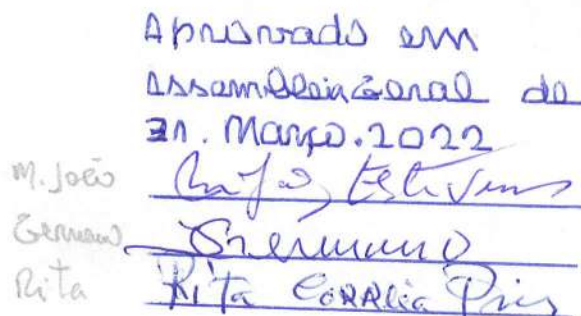 Aprovado em
Assembleia Geral de
31. Março. 2022
M. João Esteves
Germano Germano
Rita Rita Correia Pires